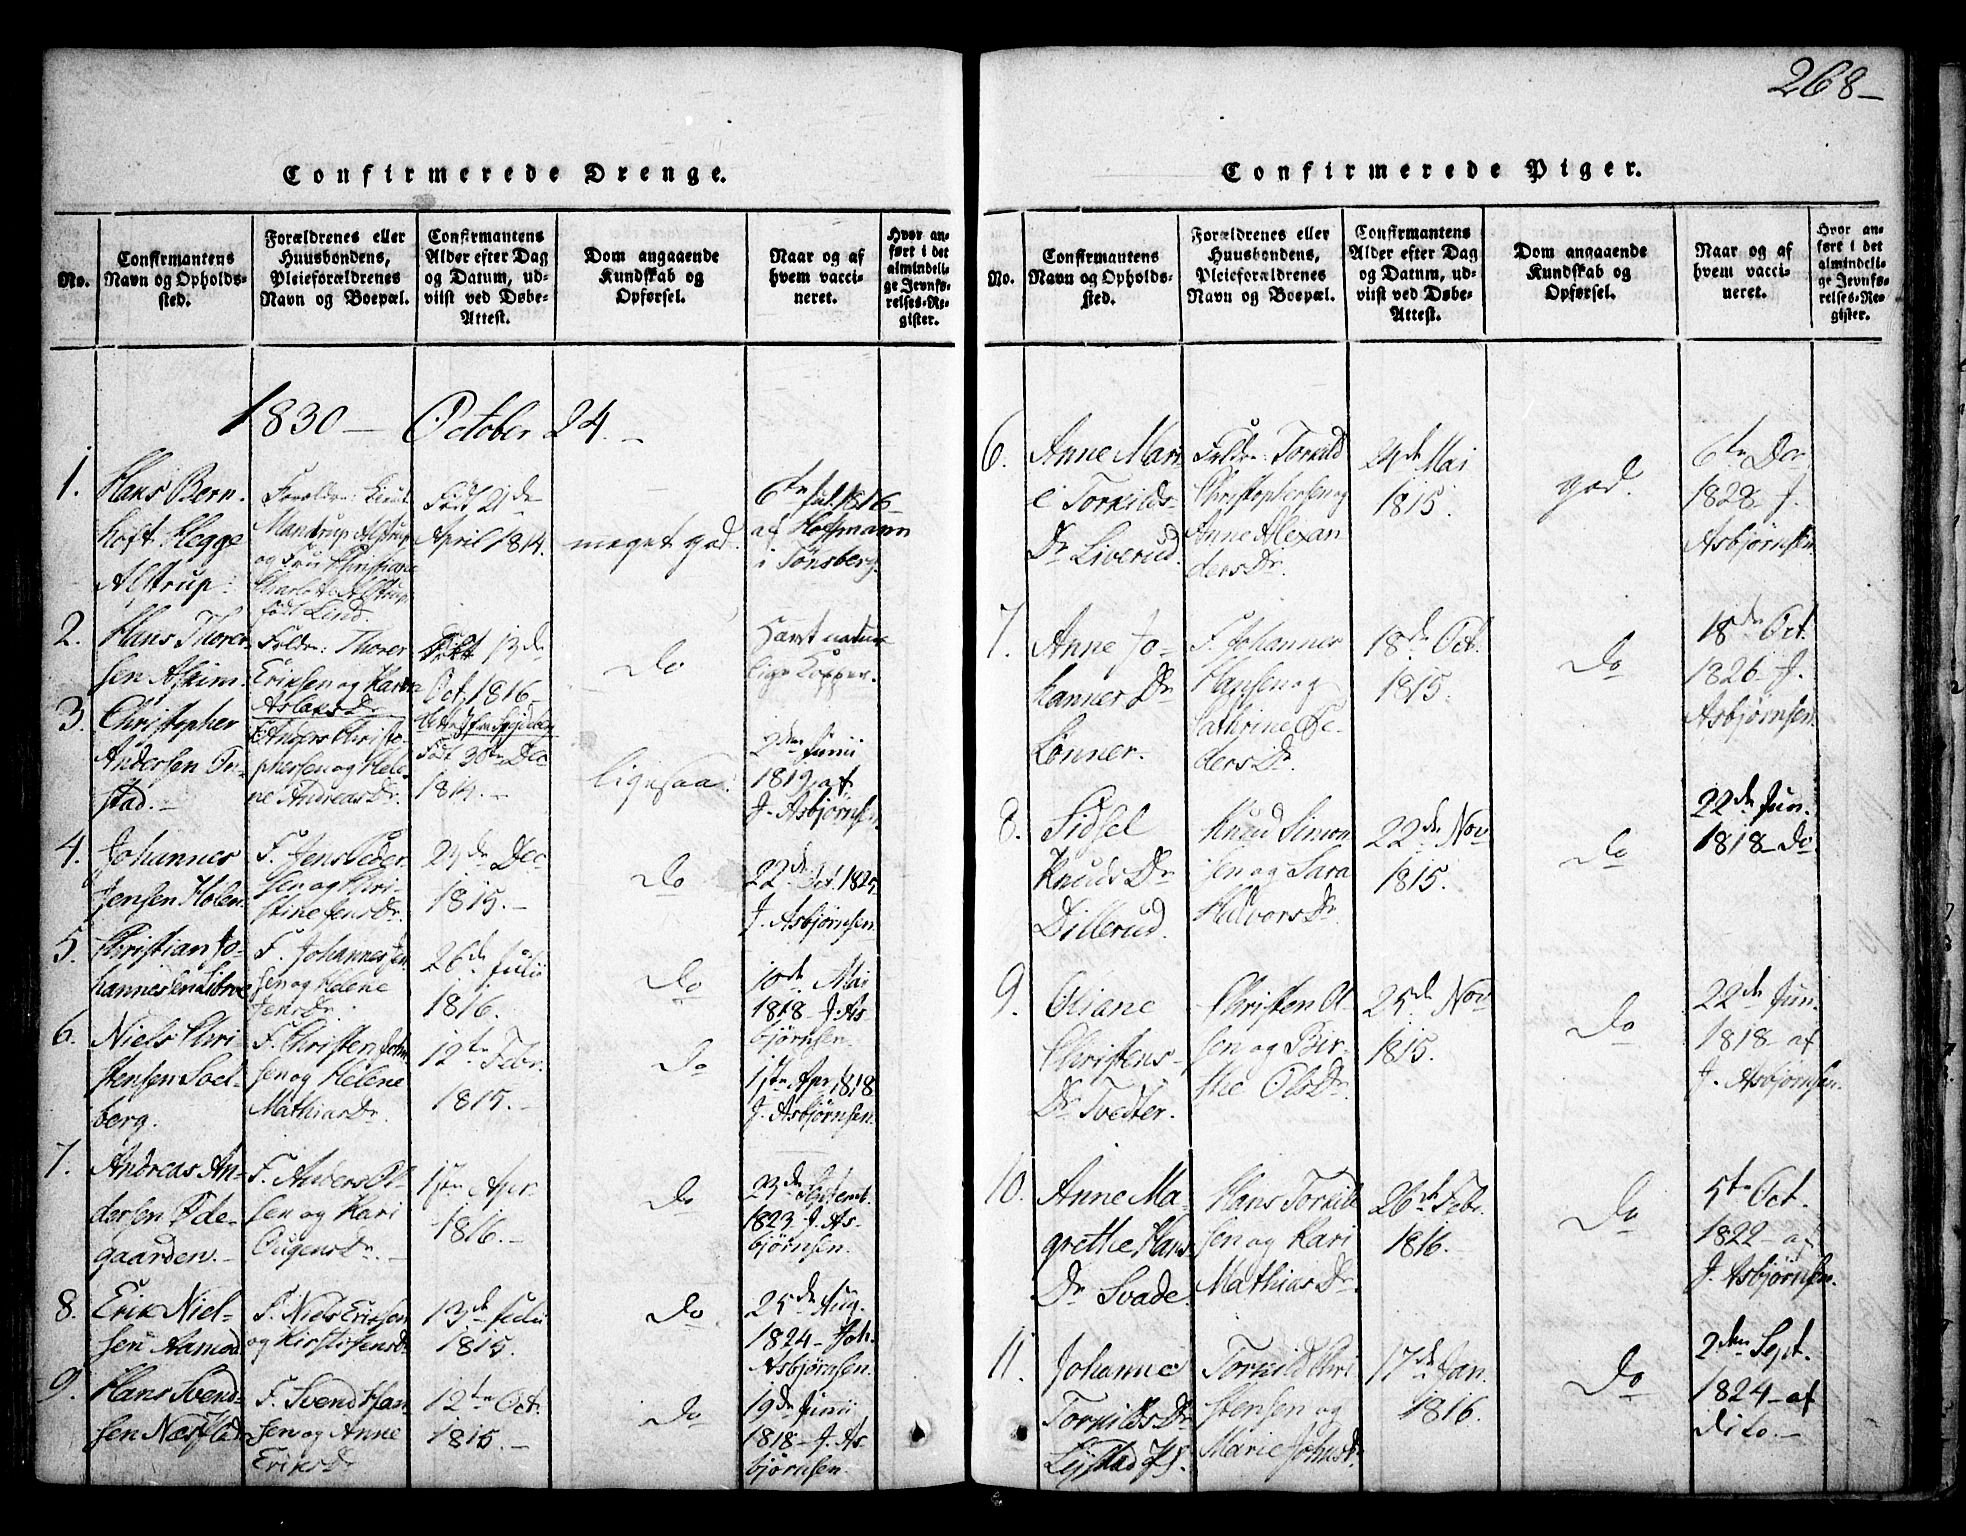 268-
Confirmerede Drenge.
No.
Confirmantens
Navn og Opholds-
sted.
Forældrenes eller
Huusbondens,
Pleieforældrenes
Navn og Boepæl.
Confirmantens
Alder efter Dag
og Datum, ud-
viist ved Døbe-
Attest.
Dom angaaende
Kundskab og
Opførsel.
Naar og af
hvem vacci-
neret.
Hvor an-
ført i det
almindeli-
ge Jevnfø-
relses-Re-
gister.
1830 - October 24. -
1.
Hans Bern-
hoft Hegge
Alstrup.
Foreldre:
Mandrup Alstrup
og Fru Christiane
Charlotte Alstrup
født Lind.
Født 21de
April 1814.
meget god.
6te Jul. 1816
af Hoffmann
i Tønsberg.
2.
Hans Thorer-
sen Askim.
Foldre: Thorer
Eriksen og Karen
Aslaks Dr
13de
Oct. 1816
Do
Havt natur-
lige Kopper.
3.
Christopher
Andersen
stad. -
Anders Christo-
phersen og Hele-
ne Andreas Dr.
Født 30te Dec
1814. -
ligesaa.
2den Junii
1819 af
J. Asbjørnsen.
4.
Johannes
Jensen Holen.
F. Jens Peder
sen og Chri-
stine Jens Dr.
29de Dec
1815. -
Do
22de Oct. 1825
J. Asbjørnsen
5.
Christian Jo-
hannesen
F. Johannes Jen
sen og Helene
Jens Dr.
26de Julii
1816.
Do
10de Mai
1818 - J. As-
bjørnsen.
6.
Niels Chri-
stensen Soel-
berg.
F. Christen John
sen og Helene
Mathias Dr.
12te Febr.
1815. -
Do
17te Apr. 1818
J. Asbjørnsen.
7.
Andreas An-
dersen Øde-
gaarden. -
F. Anders Ol-
sen og Kari
Eugens Dr. -
17te Apr.
1816. -
Do
23de Septemt.
1823 - J. As-
bjørnsen.
8.
Erik Niel-
sen Aamod
F. Niels Eriksen
og Kirsti Jens Dr
13de Julii
1815.
Do
25de Aug.
1824 - Joh.
Asbjørnsen.
9.
Hans Svend-
sen Næsstad
F. Svend Han-
sen og Anne
Eriks Dr
12te Oct.
1815. -
Do
19de Junii
1818 - J. As-
bjørnsen.
Confirmerede Piger.
No.
Confirmantens
Navn og Opholds-
sted.
Forældrenes eller
Huusbondens,
Pleieforældrenes
Navn og Boepæl.
Confirmantens
Alder efter Dag
og Datum, ud-
viist ved Døbe-
Attest.
Dom angaaende
Kundskab og
Opførsel.
Naar og af
hvem vacci-
neret.
Hvor an-
ført i det
almindeli-
ge Jevnfø-
relses-Re-
gister.
6.
Anne Mari
e Torkilds-
Dr Liverud.
Foldre: Torkild
Christophersen og
Anne Alexan
ders Dr.
24de Mai
1815.
god.
6te Dec
1828 - J.
Asbjørnsen
7.
Anne Jo-
hannes Dr
Lønner.
F. Johannes
Hansen og
Cathrine Pe-
ders Dr.
18de Oct.
1815.
Do
18de Oct.
1826 - J.
Asbjørnsen.
8.
Sidsel
Knuds Dr
Dillerud.
Knud Simon
sen og Sara
Halvors Dr
22de Nov
1815.
Do
22de Jun.
1818 - Do
9.
Oliane
Christens-
Dr Tvedter.
Christen Ol-
sen og Bir-
the Ols Dr.
25de Nov
1815.
Do
22de Jun.
1818 - af
J. Asbjørnsen.
10.
Anne Ma-
grethe Hans
Dr Svade.
Hans Torkild
sen og Kari
Mathias Dr.
26de Febr.
1816.
Do
5te Oct.
1822 - af
J. Asbjørnsen.
11.
Johanne
Torkilds Dr
Torkild Chri
stensen og
Marie Johns Dr.
17de Jan.
1816.
Do
2den Sept.
1824 - af
dito. -